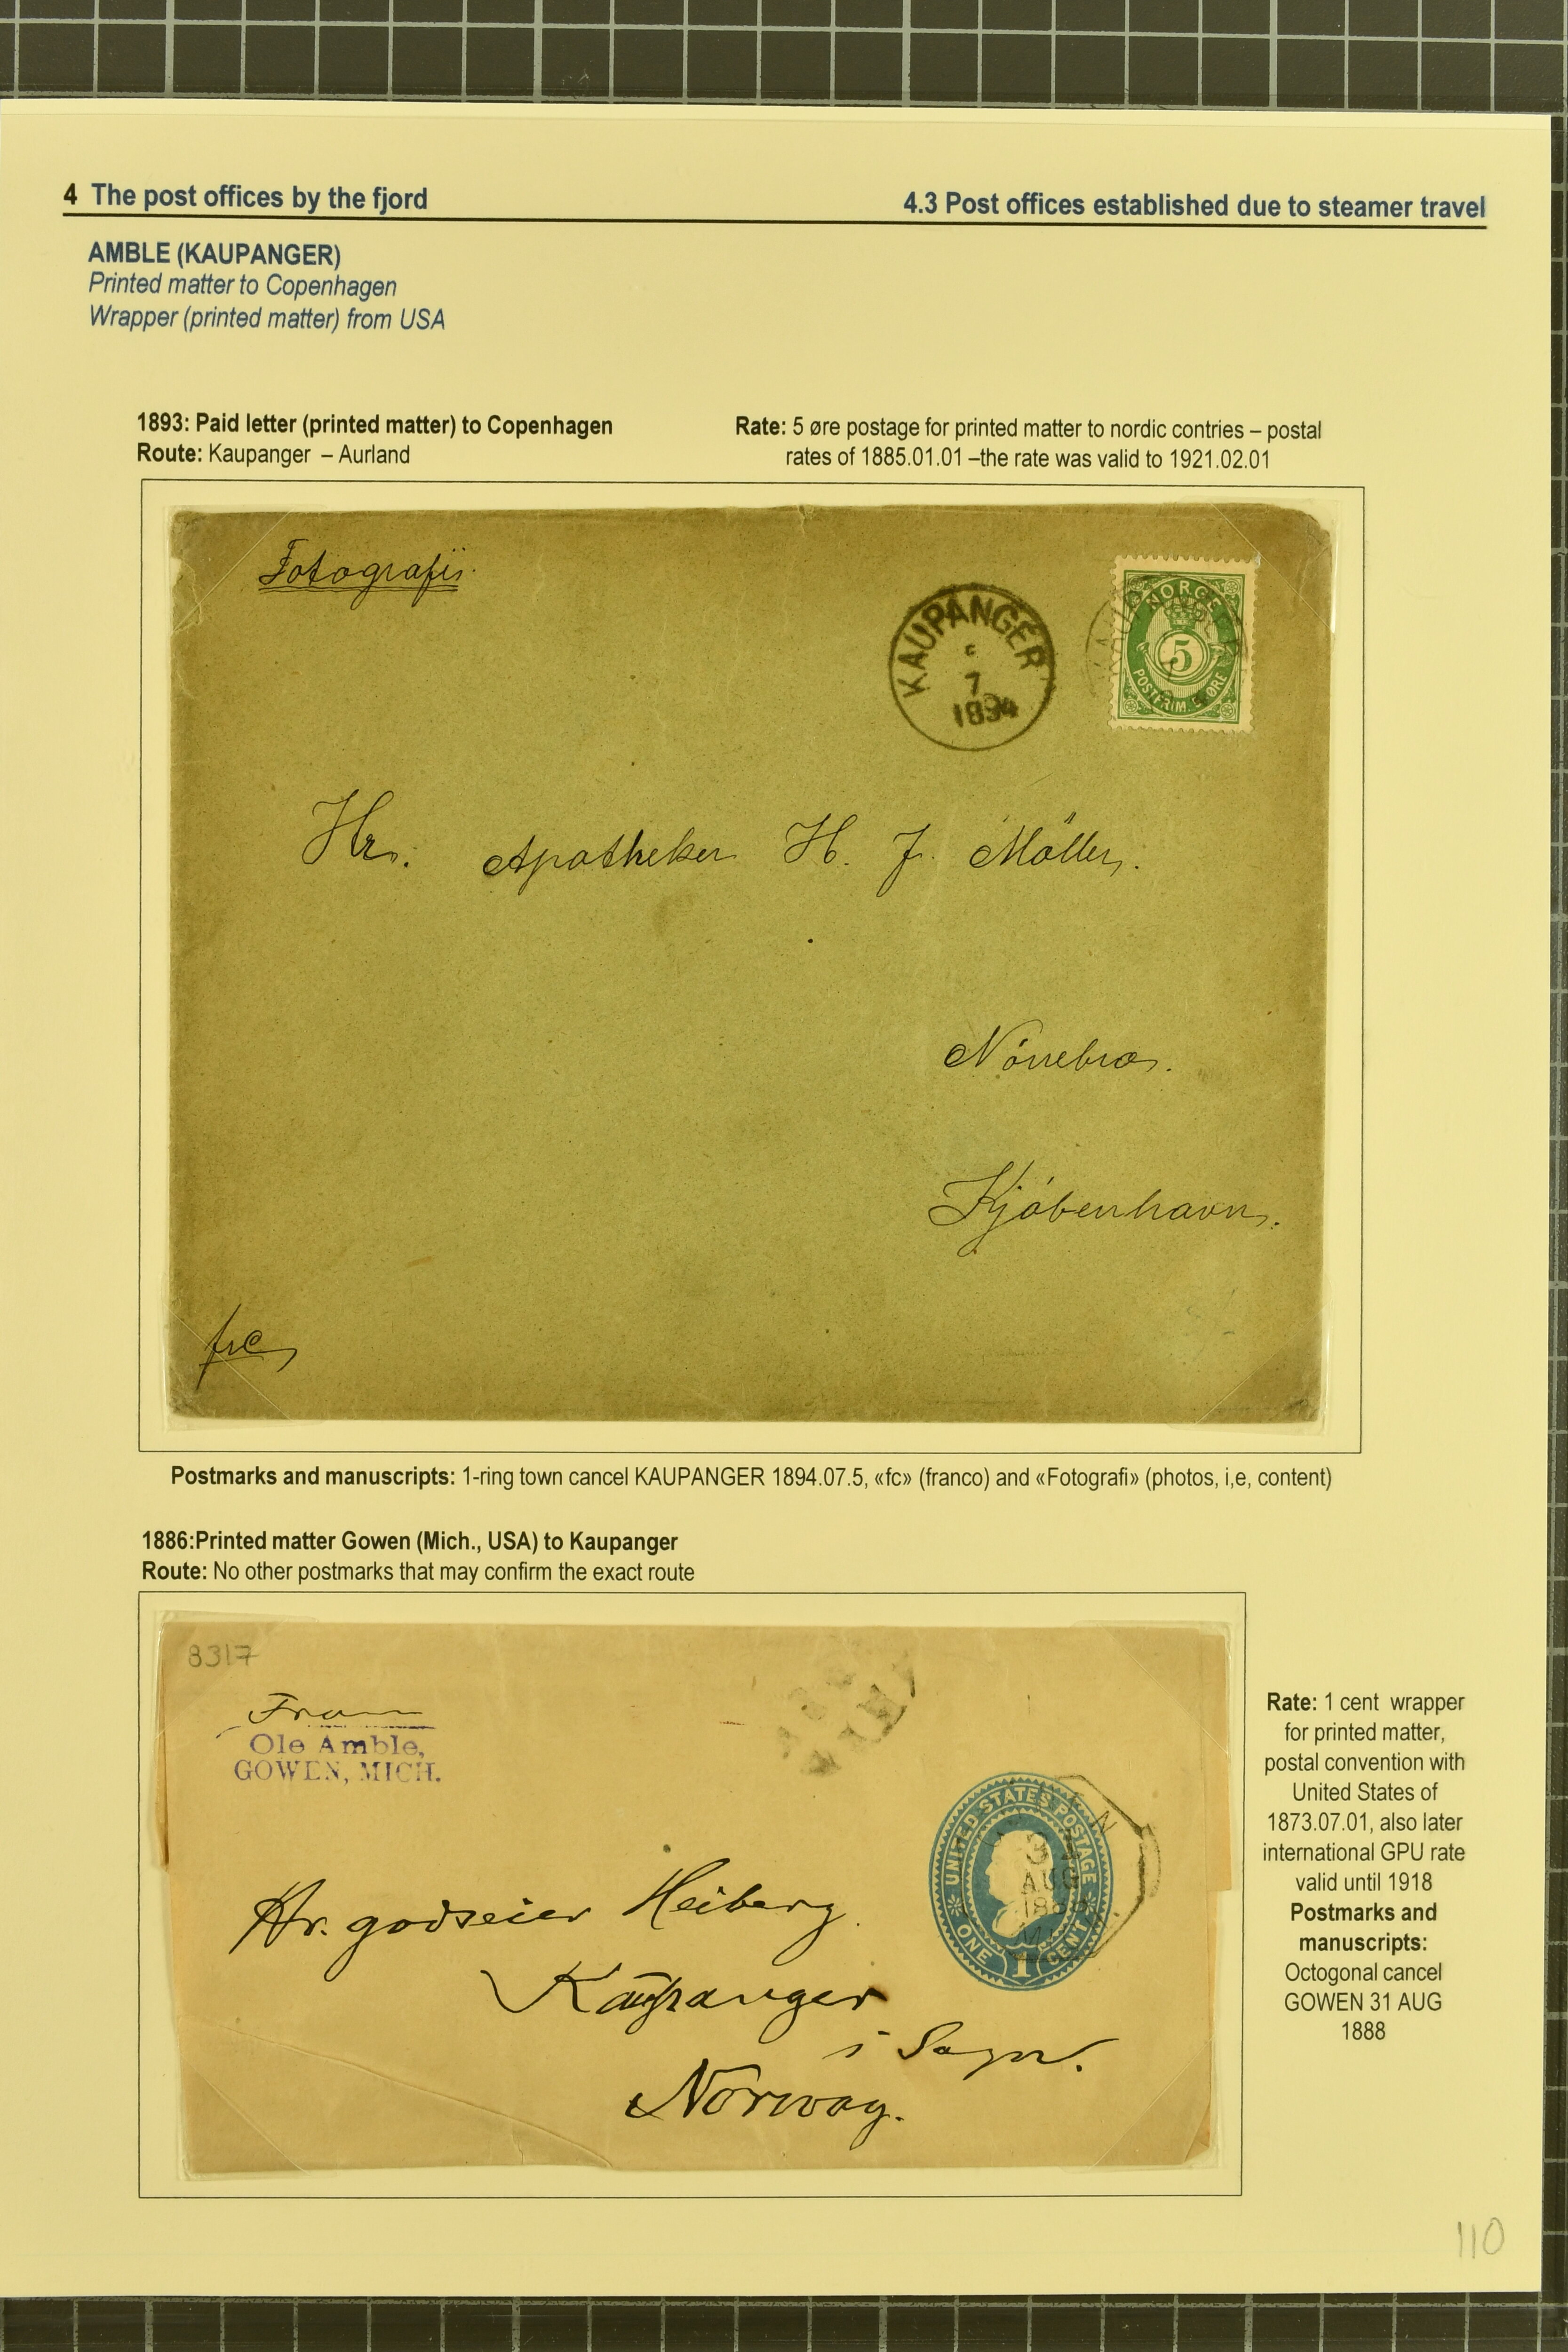 4 The post offices by the fjord
4.3 Post offices established due to steamer travel
AMBLE (KAUPANGER)
Printed matter to Copenhagen
Wrapper (printed matter) from USA
1893: Paid letter (printed matter) to Copenhagen
Route: Kaupanger – Aurland
Rate: 5 øre postage for printed matter to nordic contries – postal
rates of 1885.01.01 –the rate was valid to 1921.02.01
Fotografi
KAUPANGER
7
1894
NORGE
5
POSTFRIM. 5 ØRE
Hr. Apotheker H. J. Möller.
Nörrebro.
Kjöbenhavn.
frc
Postmarks and manuscripts: 1-ring town cancel KAUPANGER 1894.07.5, «fc» (franco) and «Fotografi» (photos, i,e, content)
1886:Printed matter Gowen (Mich., USA) to Kaupanger
Route: No other postmarks that may confirm the exact route
8317
From
Ole Amble,
GOWEN, MICH.
UNITED STATES POSTAGE
ONE 1 CENT
31
AUG
Hr. godseier Heiberg
Kaupanger
i Sogn.
Norway.
Rate: 1 cent wrapper
for printed matter,
postal convention with
United States of
1873.07.01, also later
international GPU rate
valid until 1918
Postmarks and
manuscripts:
Octogonal cancel
GOWEN 31 AUG
1888
110